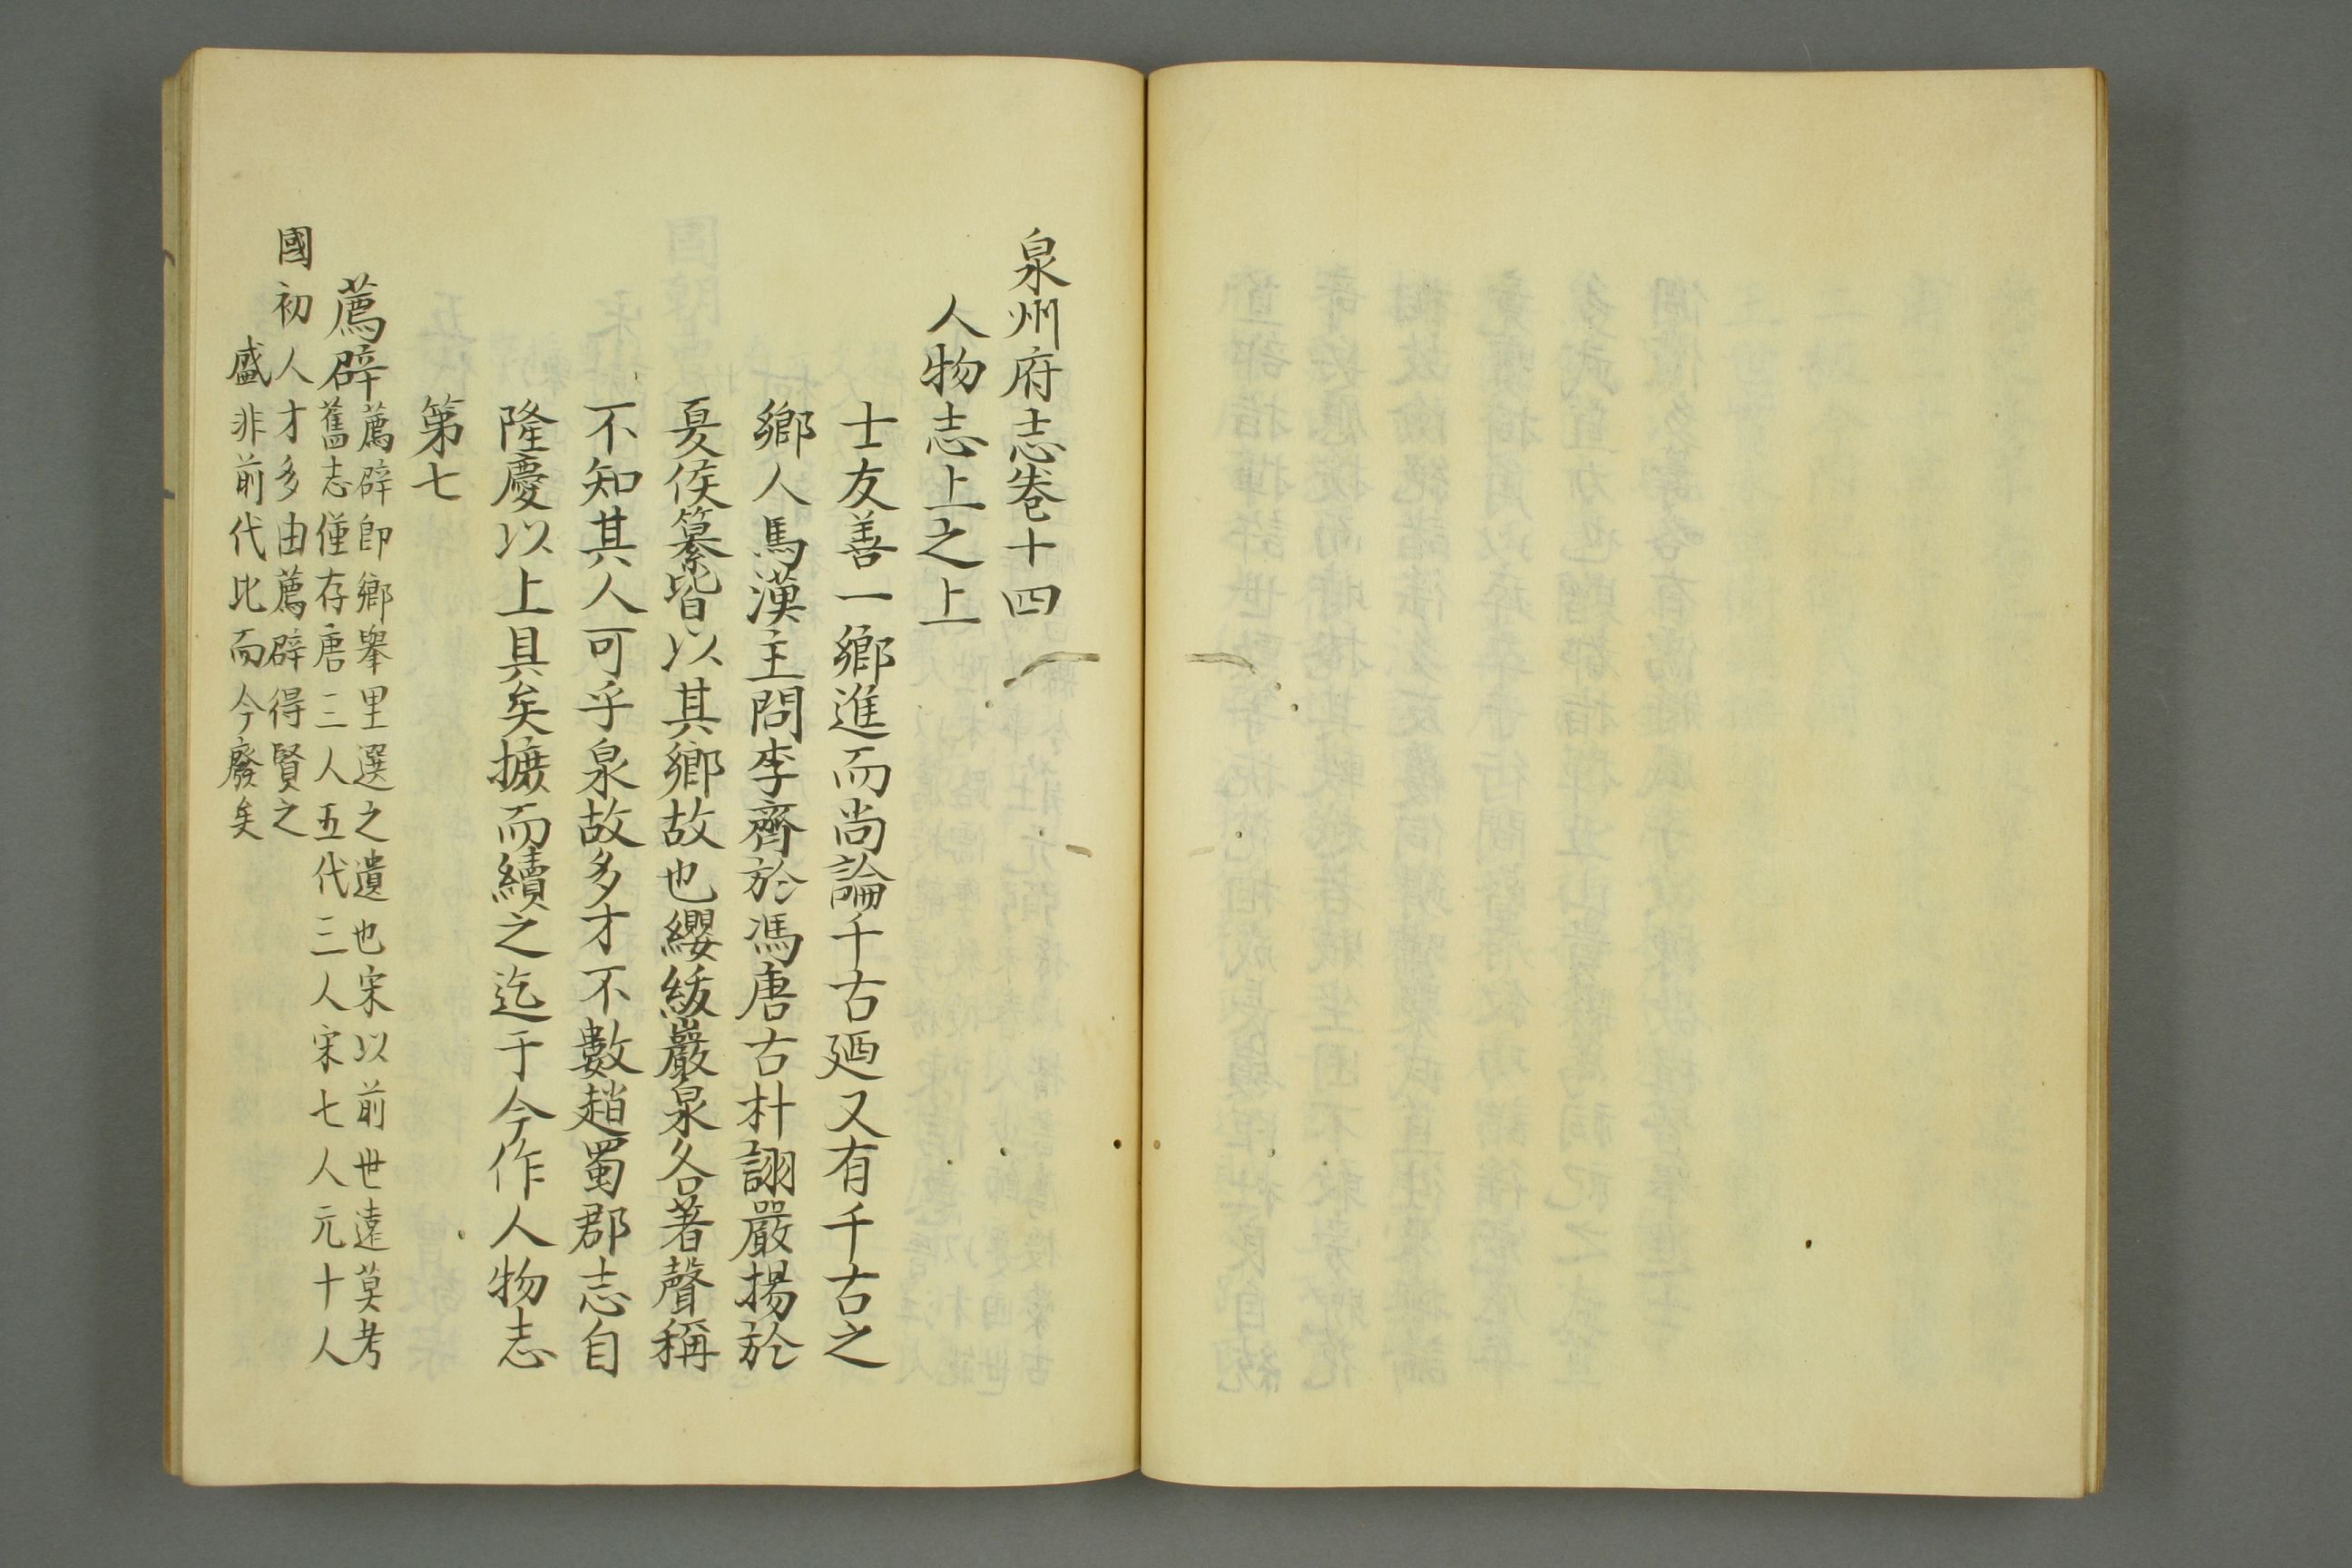 泉州府志卷十四
人物志上之上
士友善一鄉進而尚論千古廼又有千古之
鄉人馬漢主問李齊於馮唐古朴詡嚴揚於
夏侯纂皆以其鄉故也纓紱巖泉各著聲稱
不知其人可乎泉故多才不數趙蜀郡志自
隆慶以上具矣摭而續之迄于今作人物志
第七
薦辟
薦辟即鄉舉里選之遺也宋以前世遠莫考
舊志僅存唐三人五代三人宋七人元十人
國初人才多由薦辟得賢之
盛非前代比而今廢矣